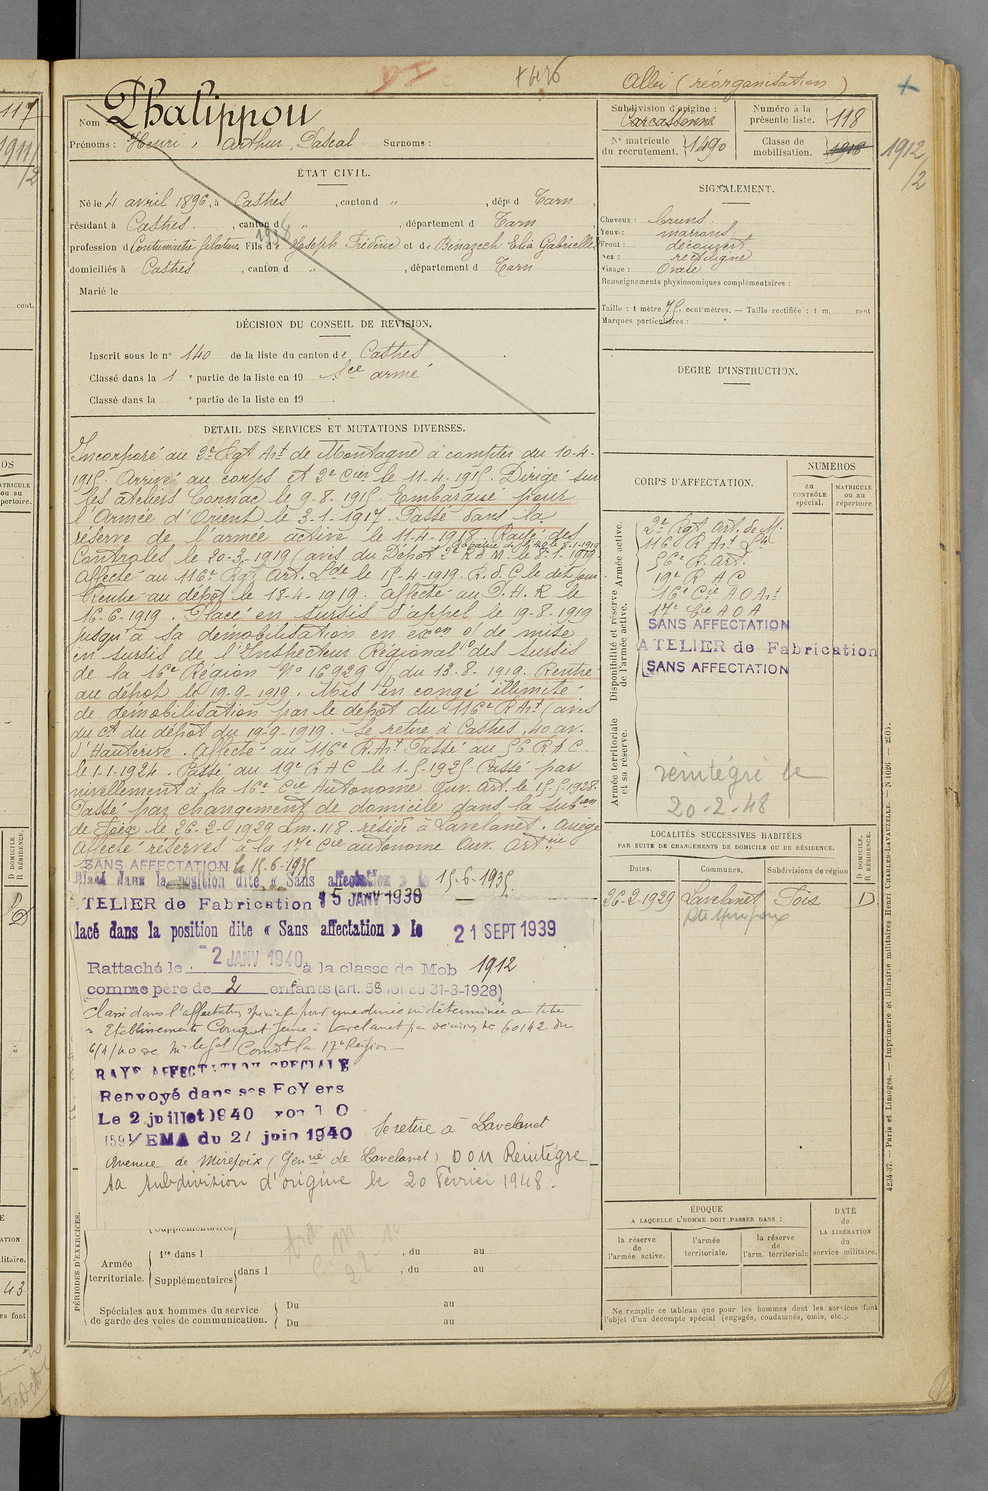 117
1911/2
D I
Allei (réorganisation)
Nom : Phalippou
Prénoms : Henri, Arthur, Pascal Surnoms :
Subdivision d'origine :
Carcassonne
Numéro à la présente liste. 118
N° matricule du recrutement. 1490
Classe de mobilisation. 1916
1912/2
ÉTAT CIVIL.
Né le 4 avril 1896, à Castres, canton d ", dépt d Tarn,
résidant à Castres, canton d ", département d Tarn
profession d Contremaître filature Fils d Joseph Frédéric et de Bénazech Elia Gabrielle
domiciliés à Castres, canton d ", département d Tarn
Marié le
SIGNALEMENT.
Cheveux : bruns.
Yeux : marrons
Front : découvert
Nez : rectiligne
Visage : Ovale
Renseignements physionomiques complémentaires :
Taille : 1 mètre 75 centimètres. — Taille rectifiée : 1 m. cent
Marques particulières :
DÉCISION DU CONSEIL DE REVISION.
Inscrit sous le n° 140 de la liste du canton de Castres
Classé dans la 1 e partie de la liste en 19 Sce armé
Classé dans la e partie de la liste en 19
DEGRÉ D'INSTRUCTION.
DÉTAIL DES SERVICES ET MUTATIONS DIVERSES.
Incorporé au 2e Rgt Art de Montagne à compter du 10-4-
1915. Arrivé au corps et 2e Cier le 11-4-1915. Dirigé sur
les ateliers Connac le 9-8-1915. Embarqué pour
l'Armée d'Orient le 3-1-1917. Passé dans la
réserve de l'armée active le 11-4-1918. Rayé des
Contrôles le 20-3-1919 (avis du Dépôt 2e R A M. le 8-1-1919
Affecté au 116e Rgt Art. Lde le 15-4-1919. R. d. C le dit jour
Rentré au dépôt le 18-4-1919. Affecté au P. A. R le
16-6-1919. Placé en sursis d'appel le 19-8-1919
jusqu'à sa démobilisation en exon d' de mise
en sursis de l'Inspecteur Régional des sursis
de la 16e Région N° 16929 du 13-8-1919. Rentré
au dépôt le 19-9-1919. Mis en congé illimité
de démobilisation par le dépôt du 116e R Art (avis
du Ct du dépôt du 19-9-1919. Se retire à Castres, 40 av.
d'Hauterive. Affecté au 116e R. Art Passé au 56 R A C.
le 1-1-1924. Passé au 19e R A C le 1-5-1925. Passé par
nivellement à la 16e Cie Autonome Ouv. Art. le 15-5-1928
Passé par changement de domicile dans la subon
de Foix le 26-2-1929 L.m. 118. réside à Lavelanet. Ariège
Affecté réserves à la 17e Cie autonome Ouv. Artrie
SANS AFFECTATION le 15-6-1935
Placé dans la position dite « Sans affectation » le 15-6-1935
TELIER de Fabrication 15 JANV 1938
lacé dans la position dite « Sans affectation » le 21 SEPT 1939
Rattaché le 2 JANV 1940 à la classe de Mob 1912
comme père de 2 enfants (art. 58 loi du 31-3-1928)
Classé dans l'affectation spéciale pour une durée indéterminée au titre
Etablissements Conquet Jeune à Lavelanet par décision N° 60142 du
6/4/40 de Mr le Gal Comdt la 17e Région
RAYÉ AFFECTATION SPÉCIALE
Renvoyé dans ses FoYers
Le 2 juillet 1940
EMA du 27 juin 1940 Se retire à Lavelanet
Avenue de Mirepoix (Genrie de Lavelanet) DOM Réintégré
sa subdivision d'origine le 20 Février 1948.
CORPS D'AFFECTATION.
NUMÉROS
au CONTRÔLE spécial.
MATRICULE ou au répertoire.
Armée active.
Disponibilité et réserve de l'armée active.
Armée territoriale et sa réserve.
2e Rgt Art. de M.
116e R Art Lde
56e R. Art.
19e R A C
16e Cie A O Art
17e Cie A O A
SANS AFFECTATION
ATELIER de Fabrication
SANS AFFECTATION
réintégré le
20-2-48
LOCALITÉS SUCCESSIVES HABITÉES
PAR SUITE DE CHANGEMENTS DE DOMICILE OU DE RÉSIDENCE.
Dates. Communes. Subdivisions de région D DOMICILE. R RÉSIDENCE.
26-2-1929 Lavelanet Foix D
PÉRIODES D'EXERCICES.
Supplémentaires
Armée territoriale.
1re dans l , du au
Supplémentaires dans l , du au
Spéciales aux hommes du service de garde des voies de communication.
Du au
Du au
ÉPOQUE
A LAQUELLE L'HOMME DOIT PASSER DANS :
la réserve de l'armée active.
l'armée territoriale.
la réserve de l'arm. territoriale
DATE de LA LIBÉRATION du service militaire.
Ne remplir ce tableau que pour les hommes dont les services font
l'objet d'un décompte spécial (engagés, condamnés, omis, etc.).
4234-37. — Paris et Limoges. — Imprimerie et librairie militaires Henri CHARLES-LAVAUZELLE.